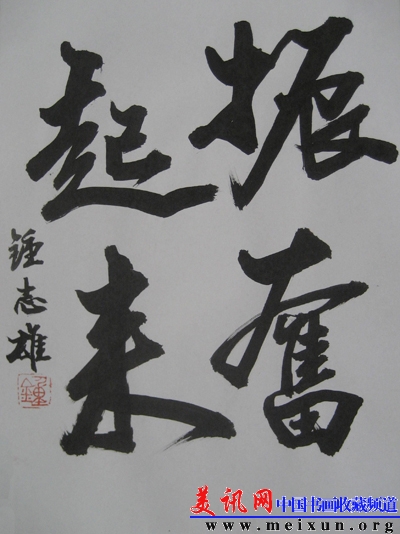 振奋
起来
鍾志雄
鍾
美讯网中国书画收藏频道
www.meixun.org